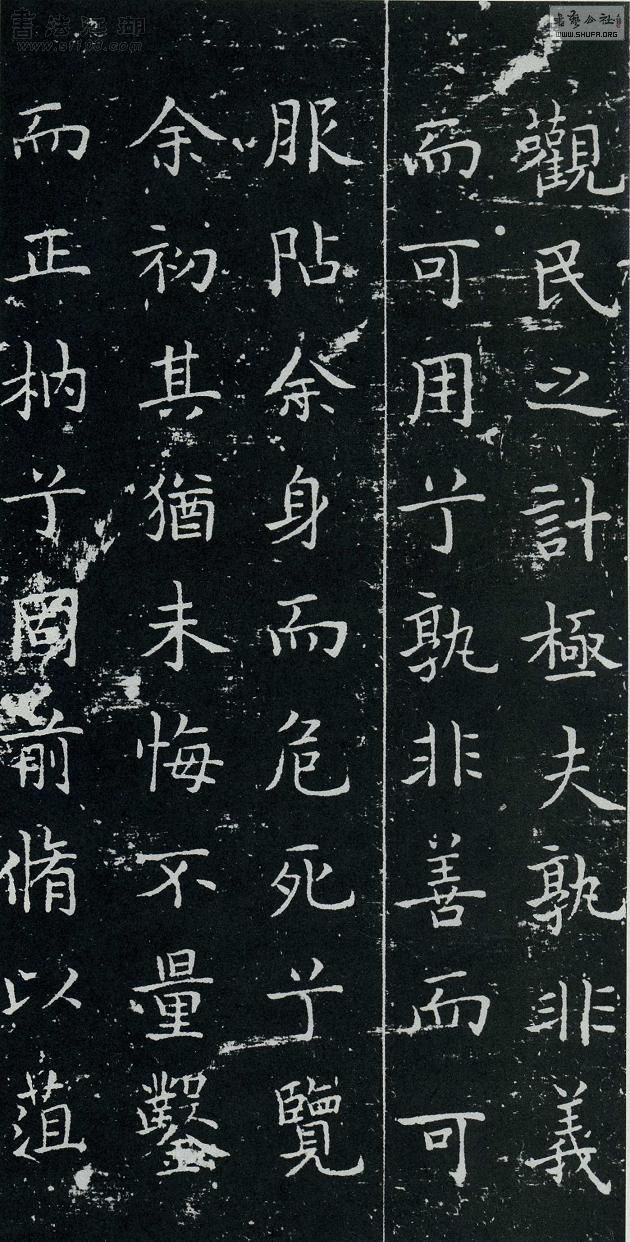 觀民之計極夫孰非義
而可用兮孰非善而可
服阽余身而危死兮覽
余初其猶未悔不量鑿
而正枘兮固前脩以菹
書法江湖
www.sf108.com
書藝公社
WWW.SHUFA.ORG